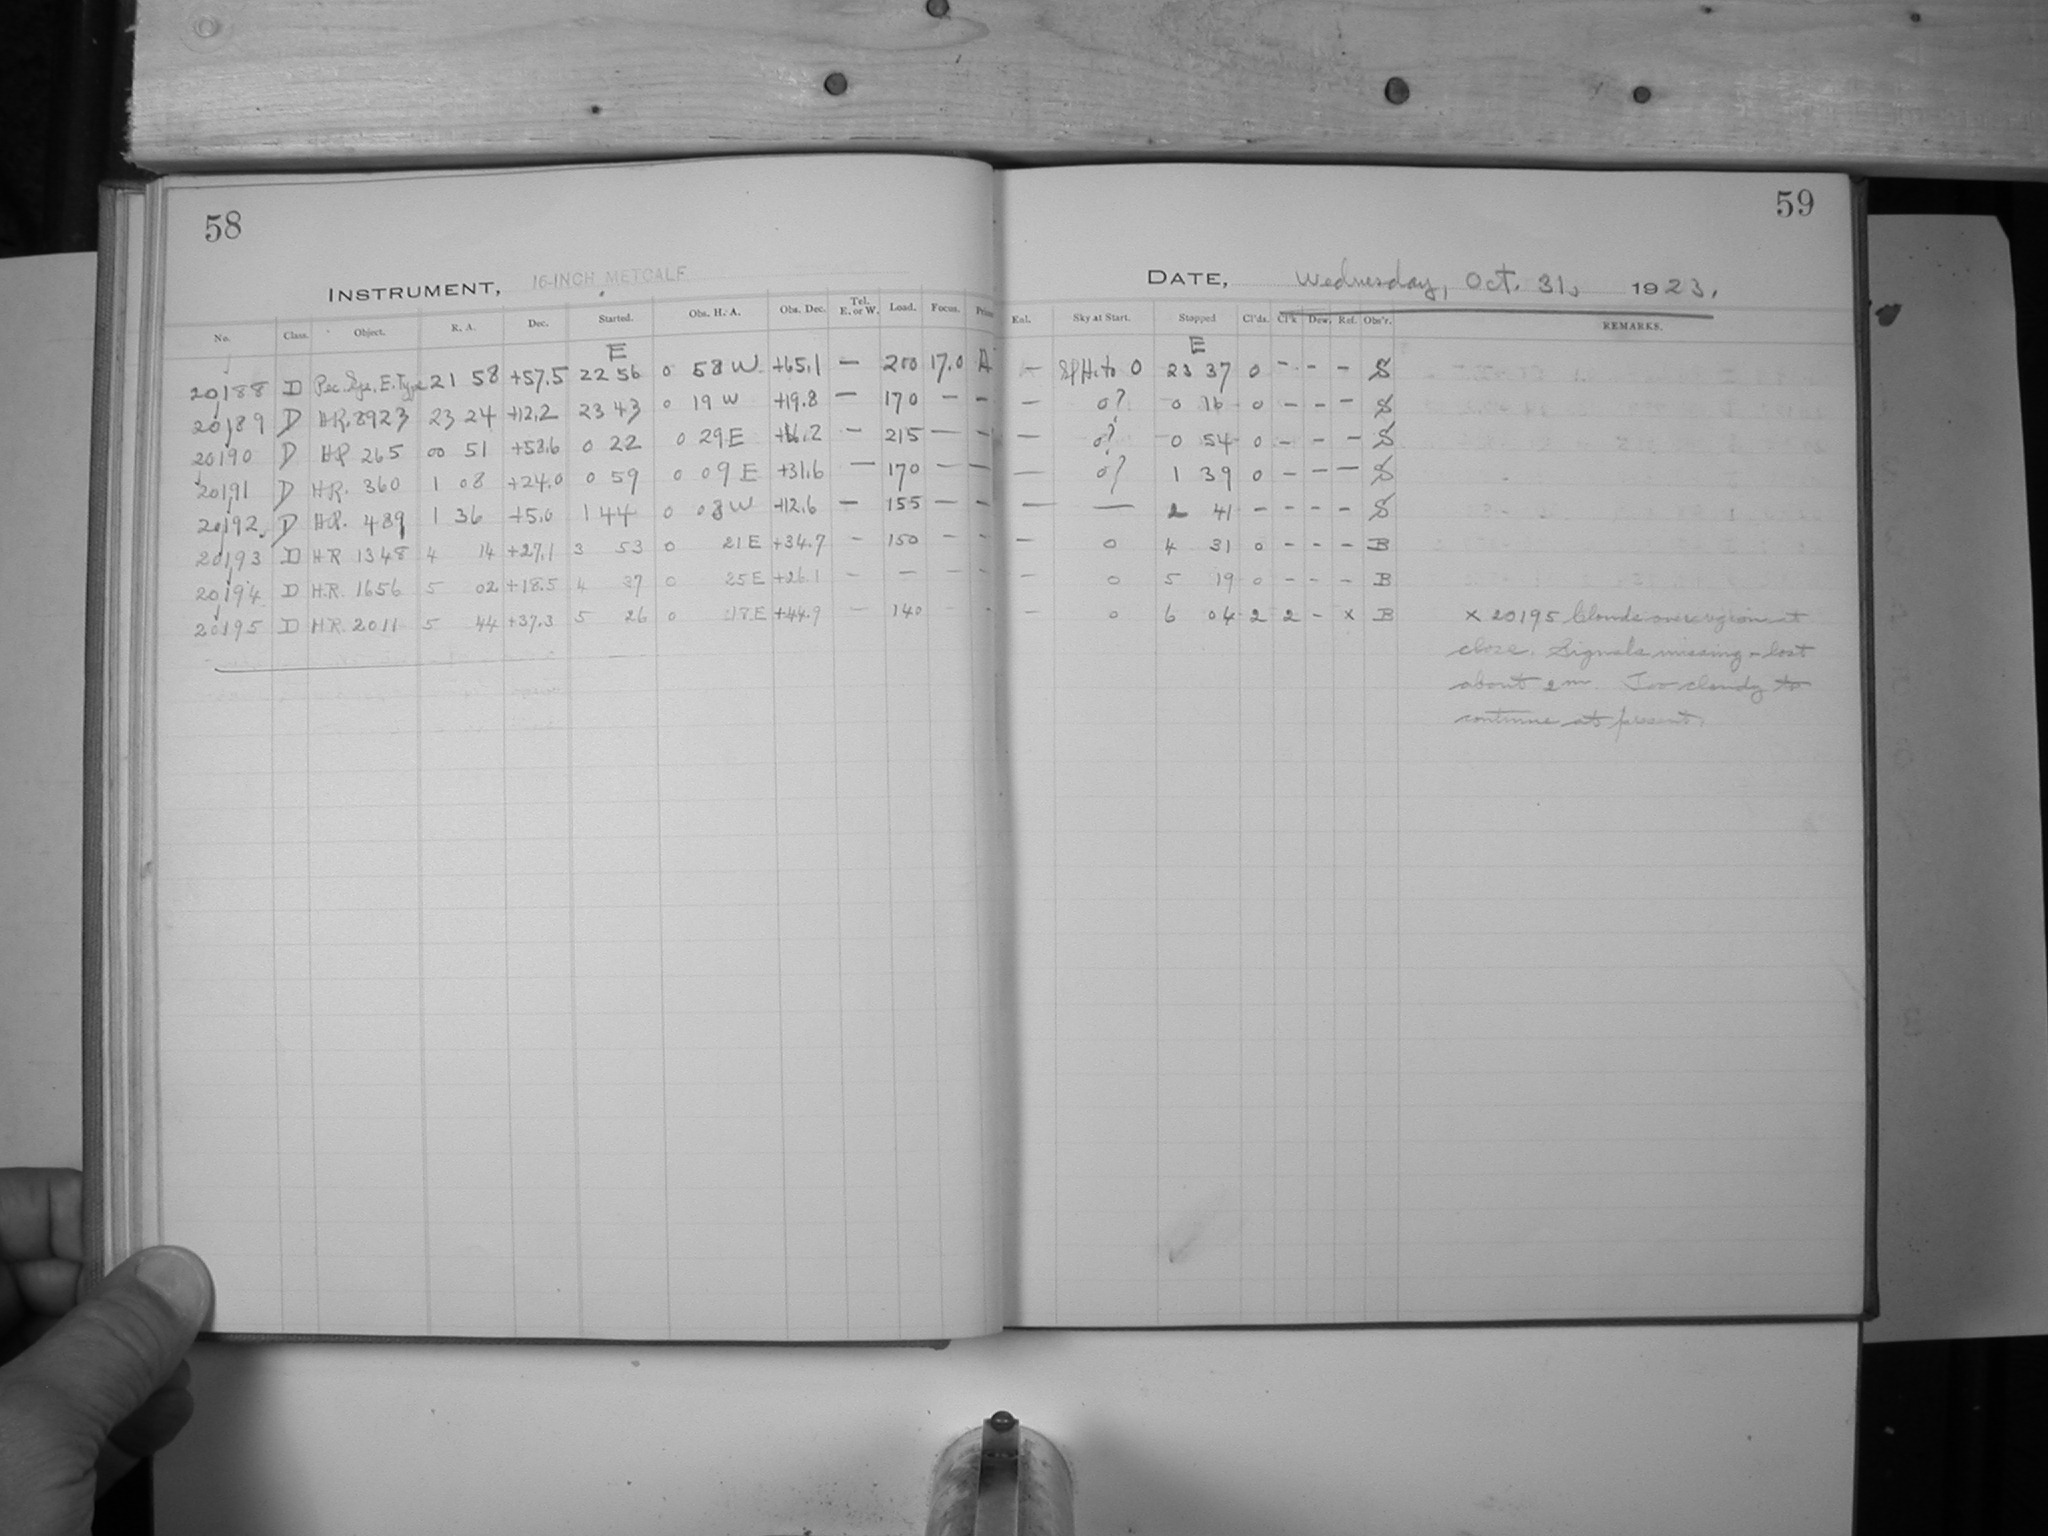 58
59
INSTRUMENT, 16-INCH METCALF
DATE, Wednesday, Oct. 31, 1923.
No. Class. Object. R. A. Dec. Started. Obs. H. A. Obs. Dec. Tel. E. or W. Load. Focus. Prism Kol. Sky at Start. Stopped Cl'ds. Cl'k Dew. Ref. Obs'r. REMARKS.
E E
20188 D Pec. Spe. E. Type 21 58 +57.5 22 56 0 58 W +65.1 — 200 17.0 A — 0 23 37 0 - - - S
20189 D H.R. 8923 23 24 +12.2 23 43 0 19 W +19.8 — 170 — — — 0? 0 16 0 — — — S
20190 D H.R. 265 00 51 +58.6 0 22 0 29 E — 215 — — — 0? 0 54 0 — — — S
20191 D H.R. 360 1 08 +24.0 0 59 0 09 E +31.6 — 170 — — — 0? 1 39 0 — — — S
20192 D H.R. 489 1 36 +5.0 1 44 0 08 W +12.6 — 155 — — — — 2 41 - - - - S
20193 D H.R. 1348 4 14 +27.1 3 53 0 21 E +34.7 - 150 - - — 0 4 31 0 - - - B
20194 D H.R. 1656 5 02 +18.5 4 37 0 25 E +26.1 - — - - — 0 5 19 0 - - - B
20195 D H.R. 2011 5 44 +37.3 5 26 0 18 E +44.9 - 140 - - — 0 6 04 2 2 - x B x 20195 Clouds over region at
close. Signals missing - lost
about 2m. Too cloudy to
continue at present.